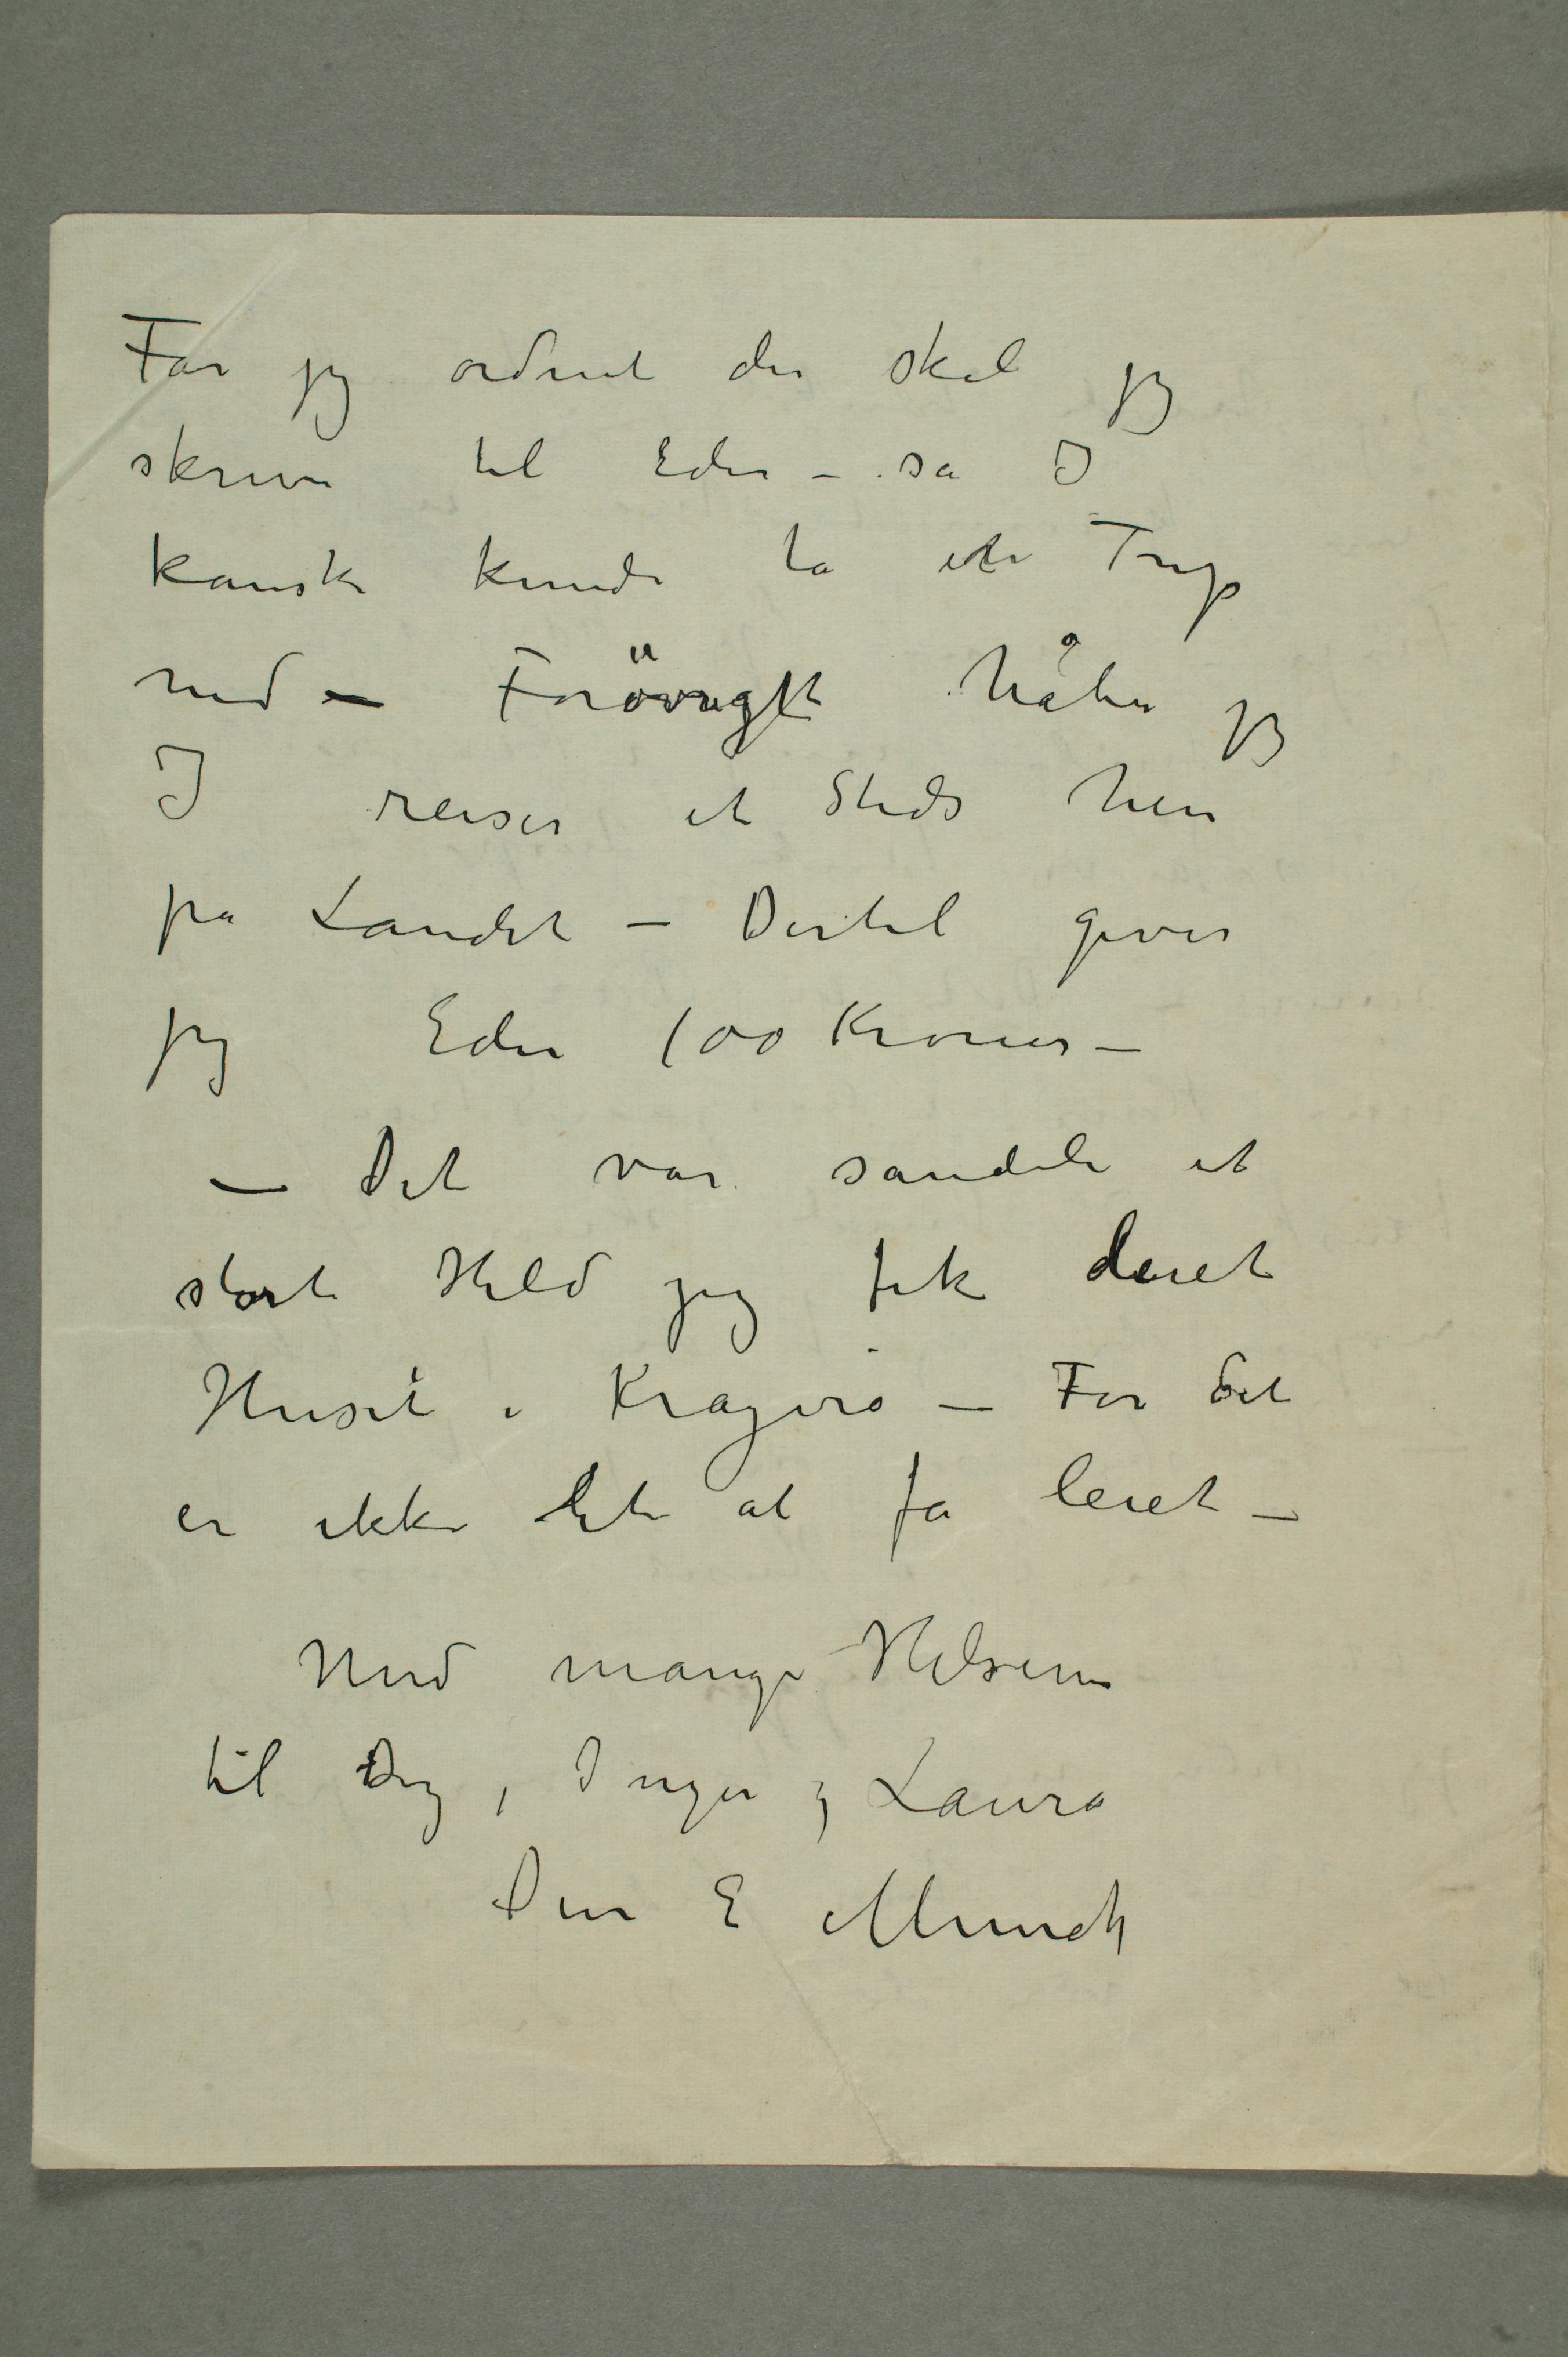 Får jeg ordnet der skal jeg
skrive til Eder – så I
kanske kunde ta en Trip
ned – Forøvrigt håber jeg
I reiser et Steds hen
på Landet – Dertil giver
jeg Eder 100 Kroner –
– Det var sandelig et
stort Held jeg fik leiet
Huset i Kragerø – For det
er ikke let at få leiet –
Med mange Hilsener
til Dig, Inger og Laura
Din E Munch